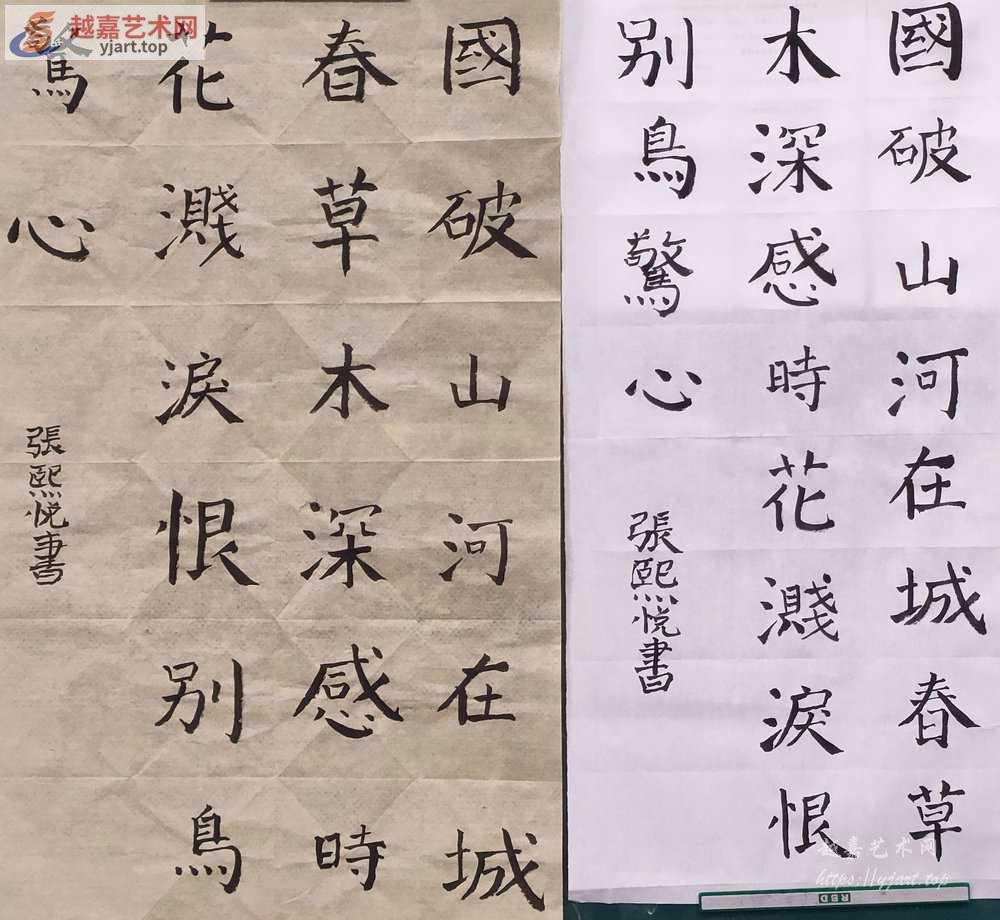 越嘉艺术网
yjart.top
國破山河在城
春草木深感時
花濺淚恨别鳥
驚心
張熙悦書
國破山河在城春草
木深感時花濺淚恨
别鳥驚心
張熙悦書
越嘉艺术网
https://yjart.top
RBD